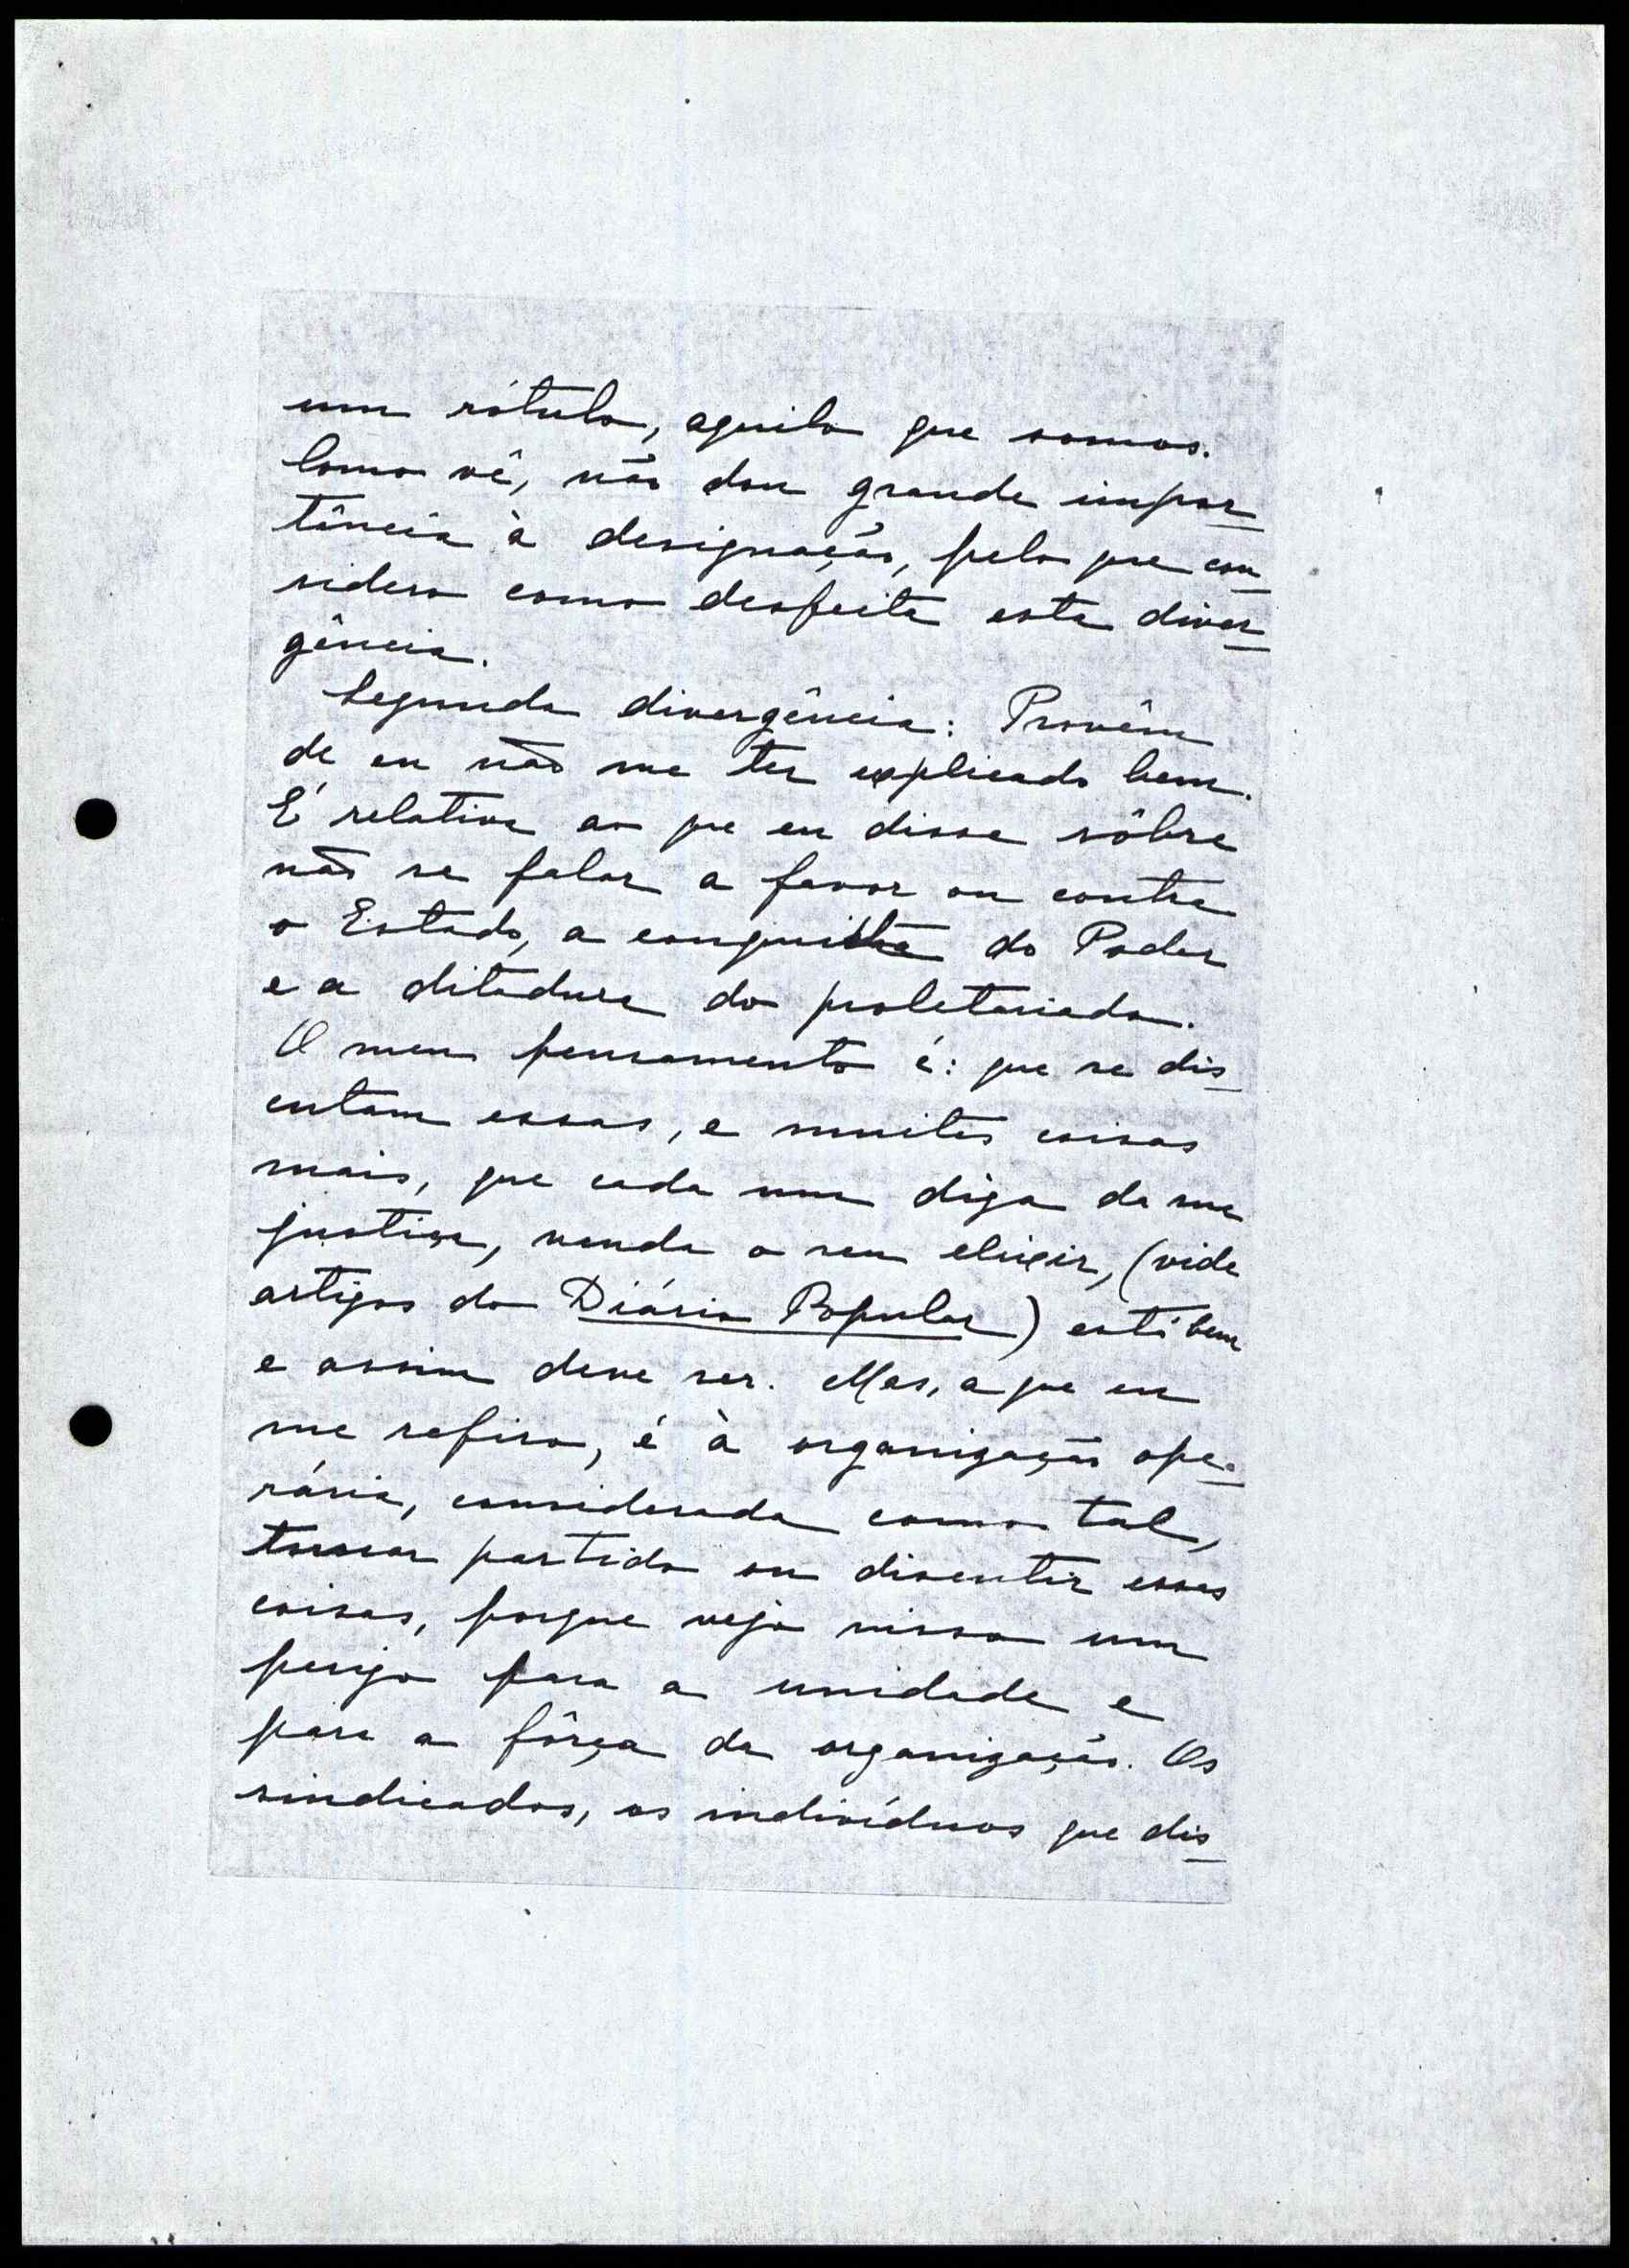 um rótulo, aquilo que somos.
Como vê, não dou grande impor-
tância à designação, pelo que con-
sidero como desfeita esta diver-
gência.
Segunda divergência: Provém
de eu não me ter explicado bem.
É relativa ao que eu disse sôbre
não se falar a favor ou contra
o Estado, a conquista do Poder
e a ditadura do proletariado.
O meu pensamento é: que se dis-
cutam essas, e muitas coisas
mais, que cada um diga da sua
justiça, venda o seu elixir, (vide
artigos do Diário Popular) está bem
e assim deve ser. Mas, a que eu
me refiro, é à organização ope-
rária, considerada como tal,
tomar partido ou discutir esses
coisas, porque vejo nisso um
perigo para a unidade e
para a fôrça da organização. Os
sindicados, os indivíduos que dis-